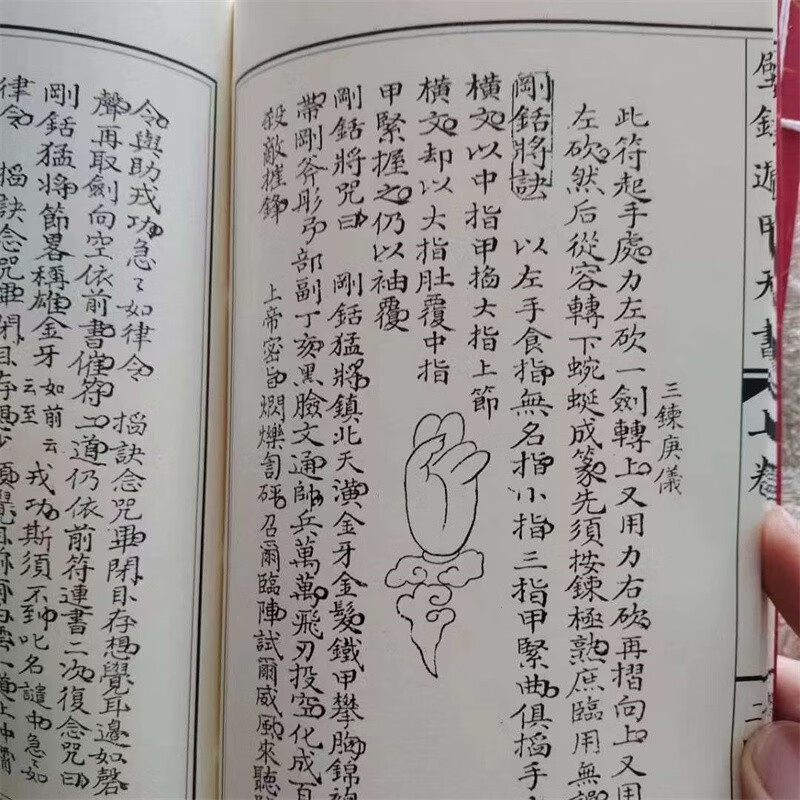 遁甲天書 上卷
三鍊庚儀
此符起手處力左砍一劍轉上又用力右砍再摺向上又用
左砍然后從容轉下蜿蜒成篆先須按鍊極熟庶臨用無誤
剛銛將訣 以左手食指無名指小指三指甲緊曲俱搯手
橫文以中指甲掐大指上節
橫文却以大指肚覆中指
甲緊握之仍以袖覆
剛銛將咒曰 剛銛猛將鎮北天潢金牙金髮鐵甲攀胸錦袍
帶剛斧彤弓部副丁亥黑臉文通帥兵萬萬飛刃投空化成百
殺敵摧鋒 上帝密旨燜爍訇砰召爾臨陣試爾威風來聽
令與助戎功急急如律令 搯訣念咒畢閉目存想覺耳邊如磬
聲再取劍向空依前書催符二道仍依前符連書二次復念咒曰
剛銛猛將節畧稱雄金牙如前云云至戎功斯須不到叱名譴中急急如
律令 搯訣念咒畢閉目存想少頃覺耳